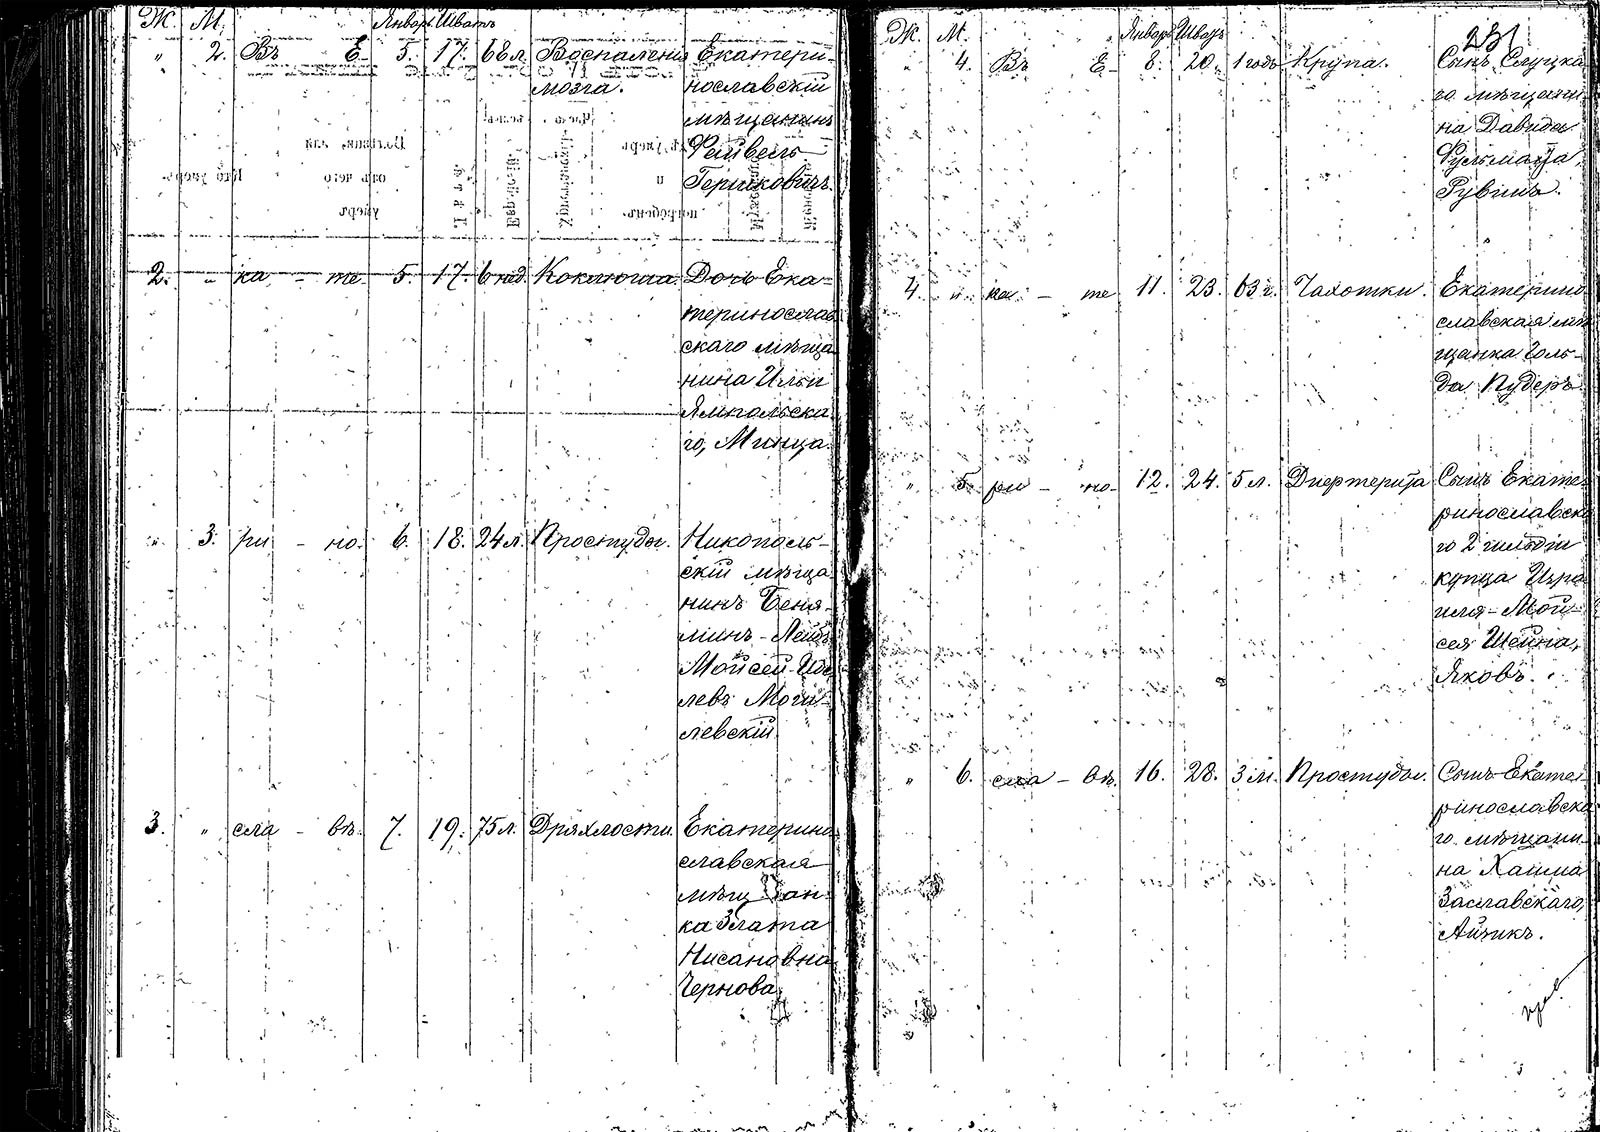 Ж. М. Январь Шватъ
" 2. Въ Е- 5. 17. 68 л. Воспаленія Екатери-
мозга. нославскій
мѣщанинъ
Файвель
Гершковичъ.
2. " ка - те- 5. 17. 6 нед. Коклюша. Дочь Ека-
теринослав
скаго мѣща
нина Ильи
Ямпольска
го, Минца
" 3. ри - но- 6. 18. 24 л. Простуды. Никополь-
скій мѣща
нинъ Беня-
минъ-Лейбъ
Мойсей
левъ Моги-
левскій.
3. " сла - въ. 7. 19. 75 л. Дряхлости. Екатерино
славская
мѣщан-
ка Злата
Нисановна
Чернова.
Ж. М. Январь Шватъ
231
" 4. Въ Е- 8. 20. 1 годъ Крупа. Сынъ Слуцка
го мѣщани
на Давида
Рувимъ.
4. " ка - те 11. 23. 63 г. Чахотки. Екатерино
славская мѣ
щанка Голь-
да Пудеръ.
" 5. ри - но- 12. 24. 5 л. Дифтерита Сынъ Екате-
ринославска
го 2 гильдіи
купца Изра
иля-Мой-
сея Шейна,
Яковъ.
" 6. сла - въ. 16. 28. 3 м. Простуды. Сынъ Екате-
ринославска
го мѣщани-
на Хаима
Заславскаго,
Айзикъ.